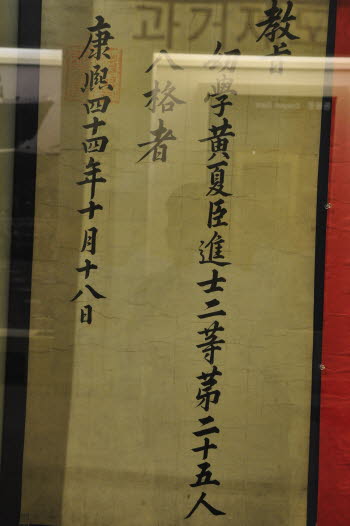 과거제도
教旨
幼學黃夏臣進士二等第二十五人
入格者
康熙四十四年十月十八日